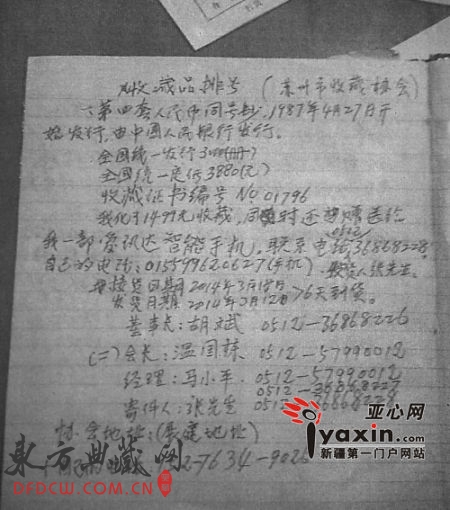 收藏品排号 (苏州市收藏协会)
第四套人民币同号钞,1987年4月27日开
始发行,由中国人民银行发行。
全国统一发行3000(册)
全国统一定价3880(元)
收藏证书编号 No 01796
我化了1499元收藏,同时还赠送给
0512
我一部 智能手机。联系电话:36868228,
自己的电话:015599620627(手机) 张先生
接货日期2014年3月18号
发货日期2014年3月12日 >6天到货。
董事长:胡斌 0512-36868226
(二)会长:温国栋 0512-57990012
经理:马小平. 0512-57990012
0512-36868227
寄件人:张先生 0512-36868228
协会地址:(房建地址)
7634-902
亚心网
iyaxin.com
新疆第一门户网站
东方典藏网
DFDCW.COM.CN